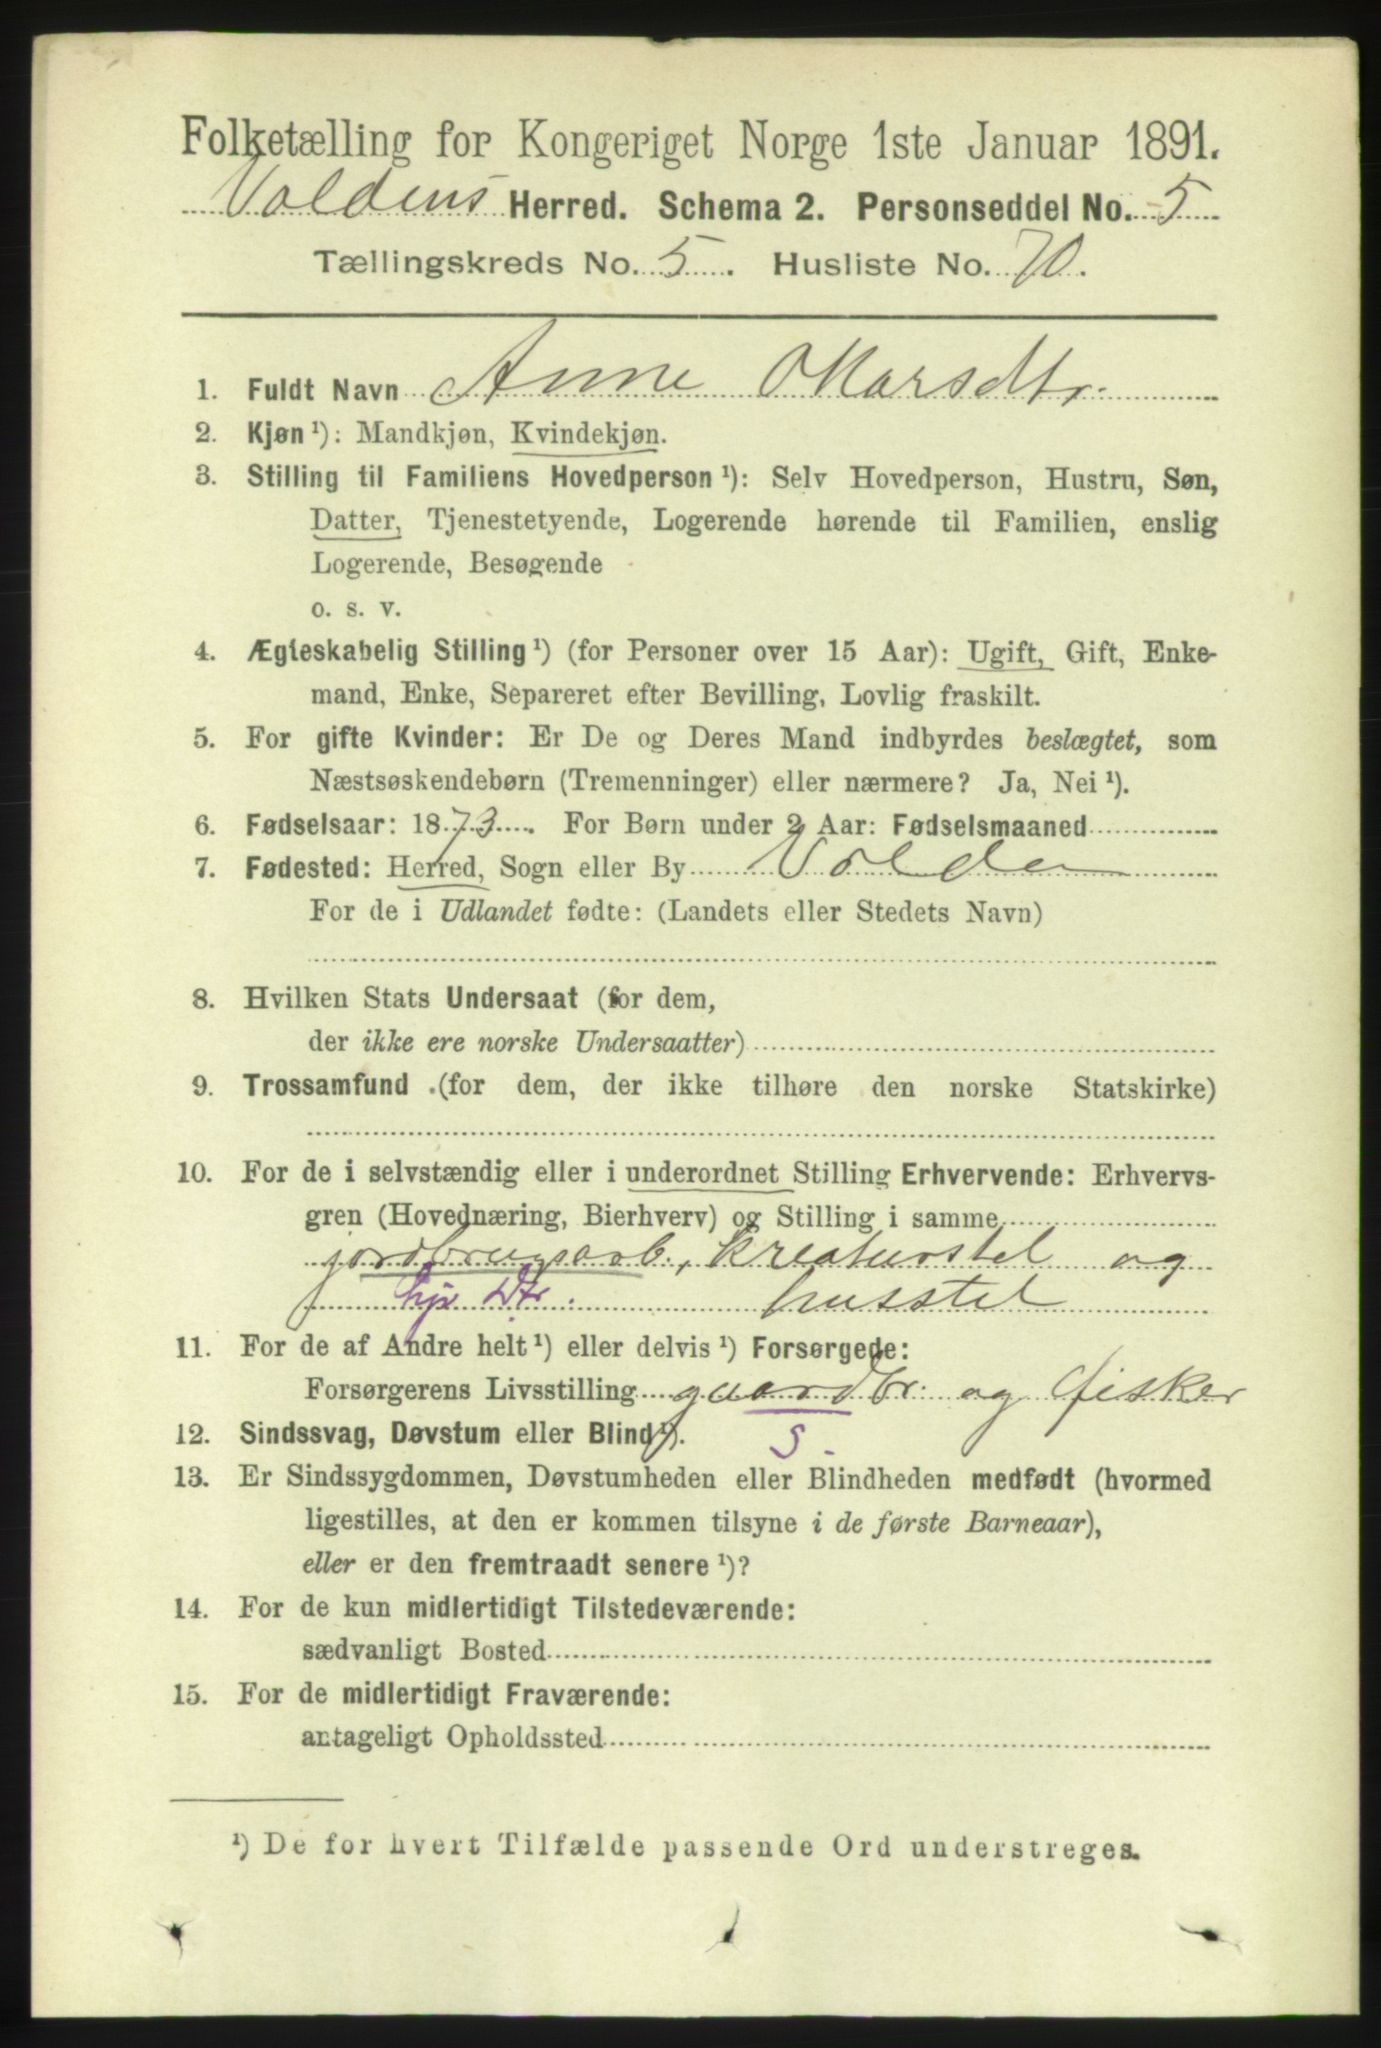 Folketælling for Kongeriget Norge 1ste Januar 1891.
Voldens Herred. Schema 2. Personseddel No. 5
Tællingskreds No. 5. Husliste No. 70.
1. Fuldt Navn Anne Marsdtr.
2. Kjøn ¹): Mandkjøn, Kvindekjøn.
3. Stilling til Familiens Hovedperson ¹): Selv Hovedperson, Hustru, Søn,
Datter, Tjenestetyende, Logerende hørende til Familien, enslig
Logerende, Besøgende
o. s. v.
4. Ægteskabelig Stilling ¹) (for Personer over 15 Aar): Ugift, Gift, Enke-
mand, Enke, Separeret efter Bevilling, Lovlig fraskilt.
5. For gifte Kvinder: Er De og Deres Mand indbyrdes beslægtet, som
Næstsøskendebørn (Tremenninger) eller nærmere? Ja, Nei ¹).
6. Fødselsaar: 1873. For Børn under 2 Aar: Fødselsmaaned
7. Fødested: Herred, Sogn eller By Volden
For de i Udlandet fødte: (Landets eller Stedets Navn)
8. Hvilken Stats Undersaat (for dem,
der ikke ere norske Undersaatter)
9. Trossamfund (for dem, der ikke tilhøre den norske Statskirke)
10. For de i selvstændig eller i underordnet Stilling Erhvervende: Erhvervs-
gren (Hovednæring, Bierhverv) og Stilling i samme
jordbrugsarb., kreaturstel og
hjv Dtr. husstel
11. For de af Andre helt ¹) eller delvis ¹) Forsørgede:
Forsørgerens Livsstilling gaardbr. og fisker
12. Sindssvag, Døvstum eller Blind ¹). S.
13. Er Sindssygdommen, Døvstumheden eller Blindheden medfødt (hvormed
ligestilles, at den er kommen tilsyne i de første Barneaar),
eller er den fremtraadt senere ¹)?
14. For de kun midlertidigt Tilstedeværende:
sædvanligt Bosted
15. For de midlertidigt Fraværende:
antageligt Opholdssted
¹) De for hvert Tilfælde passende Ord understreges.